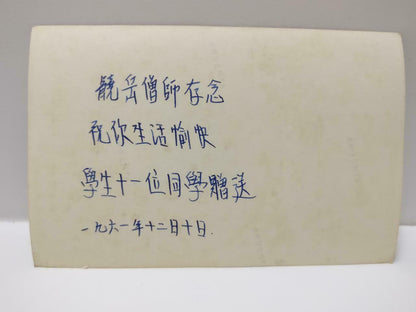 競岳僧師存念
祝你生活愉快
學生十一位同學贈送
一九六一年十二月十日.